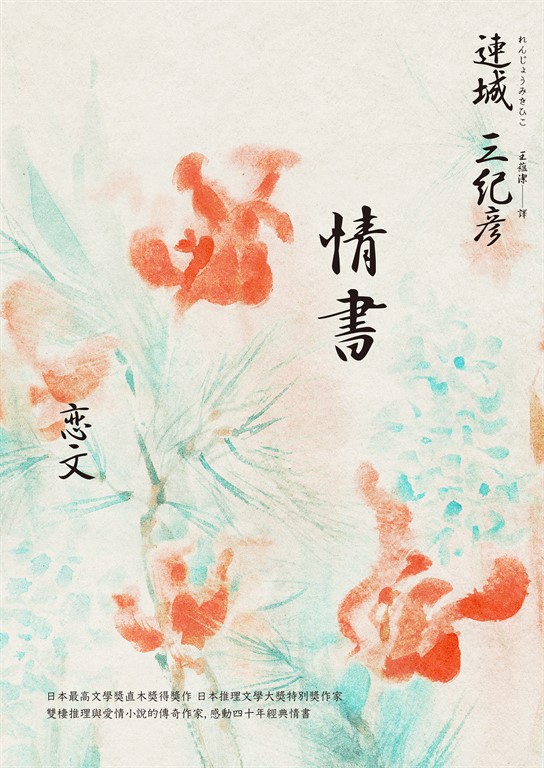 連城 三紀彥
れんじょうみきひこ
王蘊潔──譯
情書
恋文
日本最高文學獎直木獎得獎作 日本推理文學大獎特別獎作家
雙棲推理與愛情小說的傳奇作家, 感動四十年經典情書